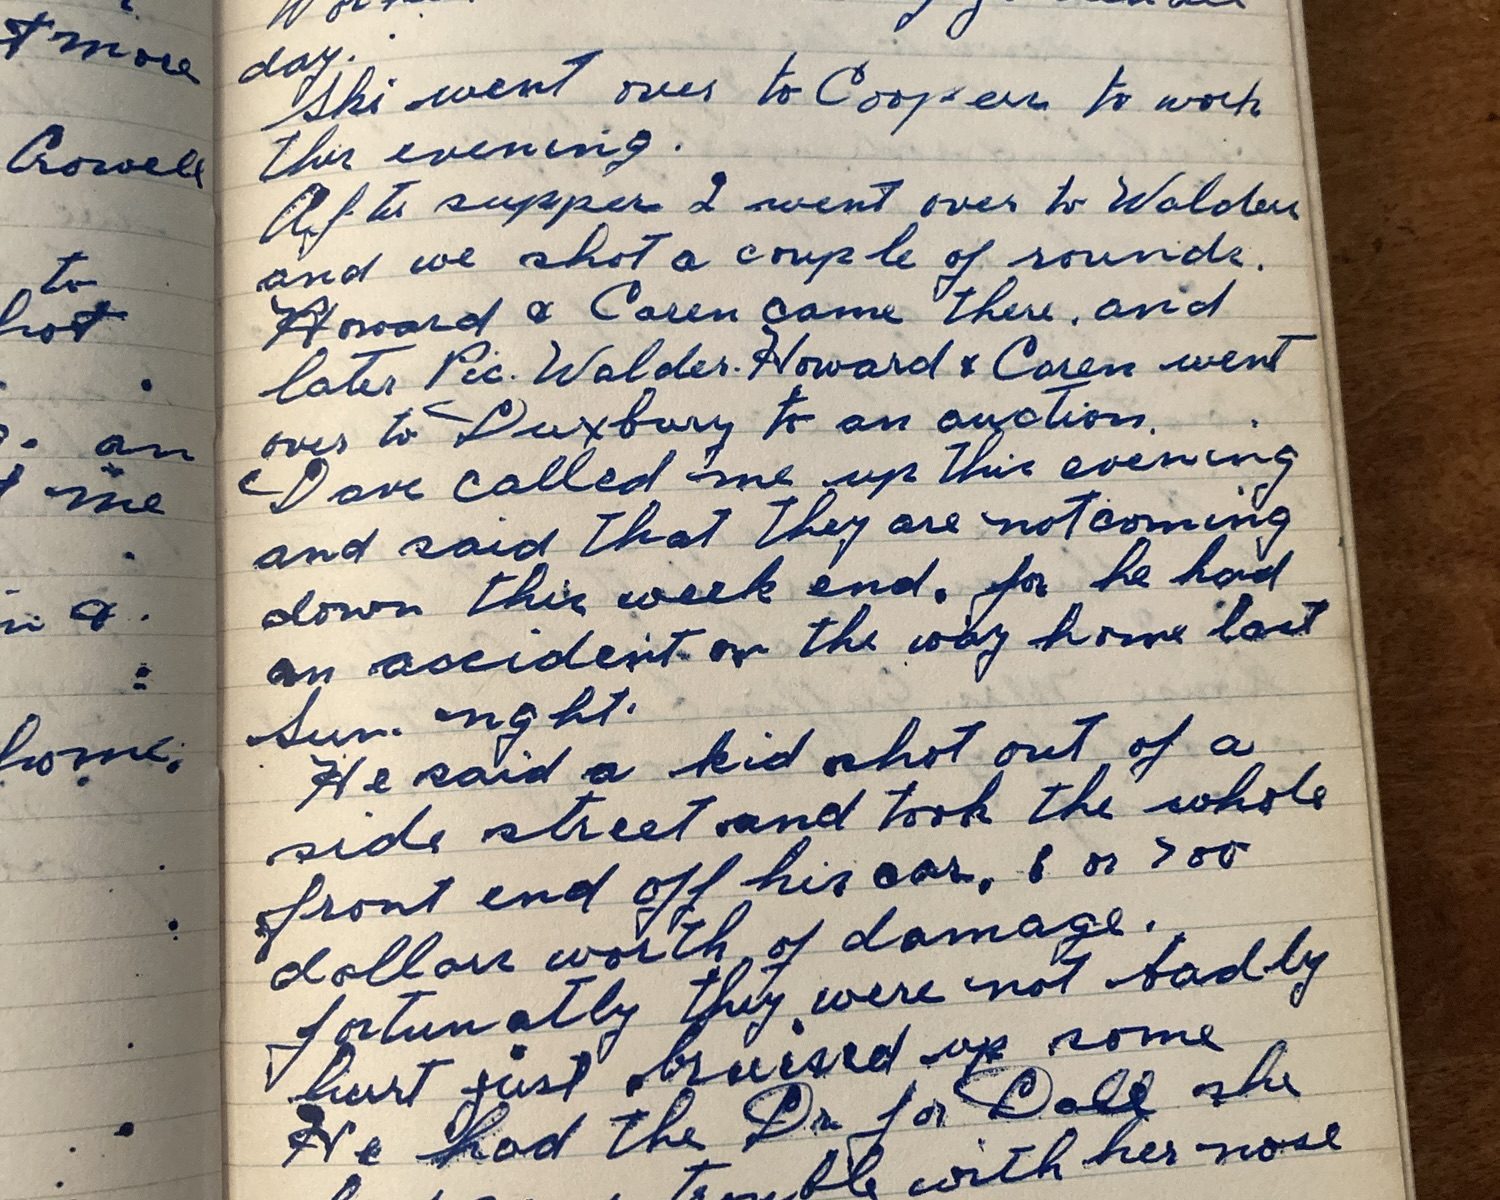 t more
Crowell
to
hot
an
t me
home.
day.
Ski went over to Coopers to work
this evening.
After supper I went over to Walders
and we shot a couple of rounds.
Howard & Caren came there, and
later Pic. Walder. Howard & Caren went
over to Duxbury to an auction.
Dave called me up this evening
and said that they are not coming
down this week end, for he had
an accident on the way home last
Sun. night.
He said a kid shot out of a
side street and took the whole
front end off his car, 6 or 700
dollars worth of damage.
fortunatly they were not badly
hurt just bruised up some
He had the Dr for Dall she
trouble with her nose